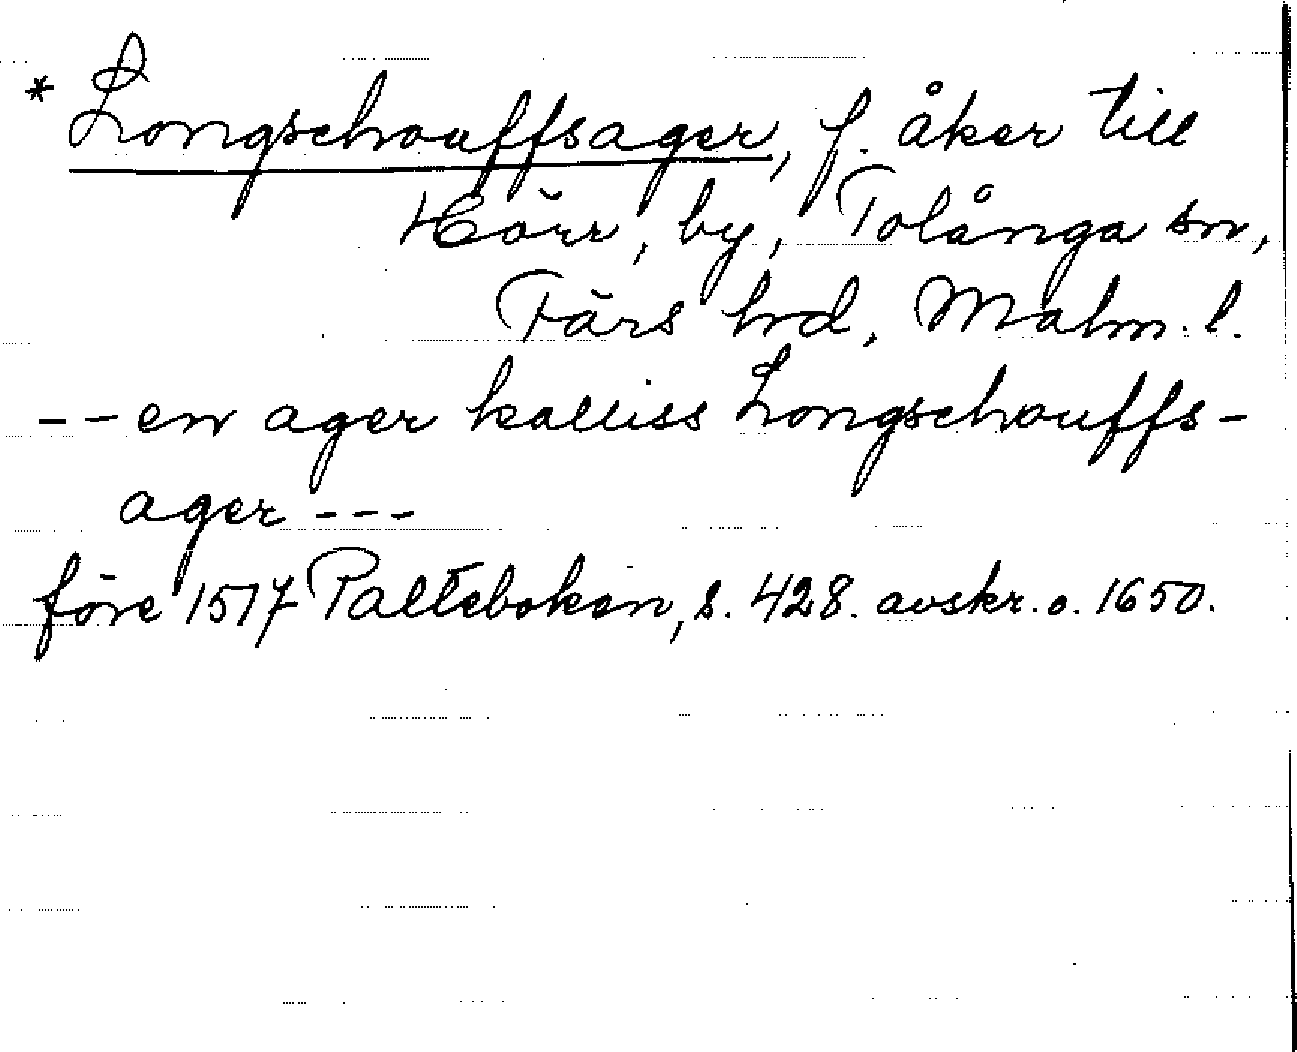 * Longschouffsager, f. åker till
Hörr, by, Tolånga sn,
Färs hrd, Malm. l.
-- en ager kalliss Longschouffs-
ager ---
före 1517 Palteboken, s. 428. avskr. o. 1650.